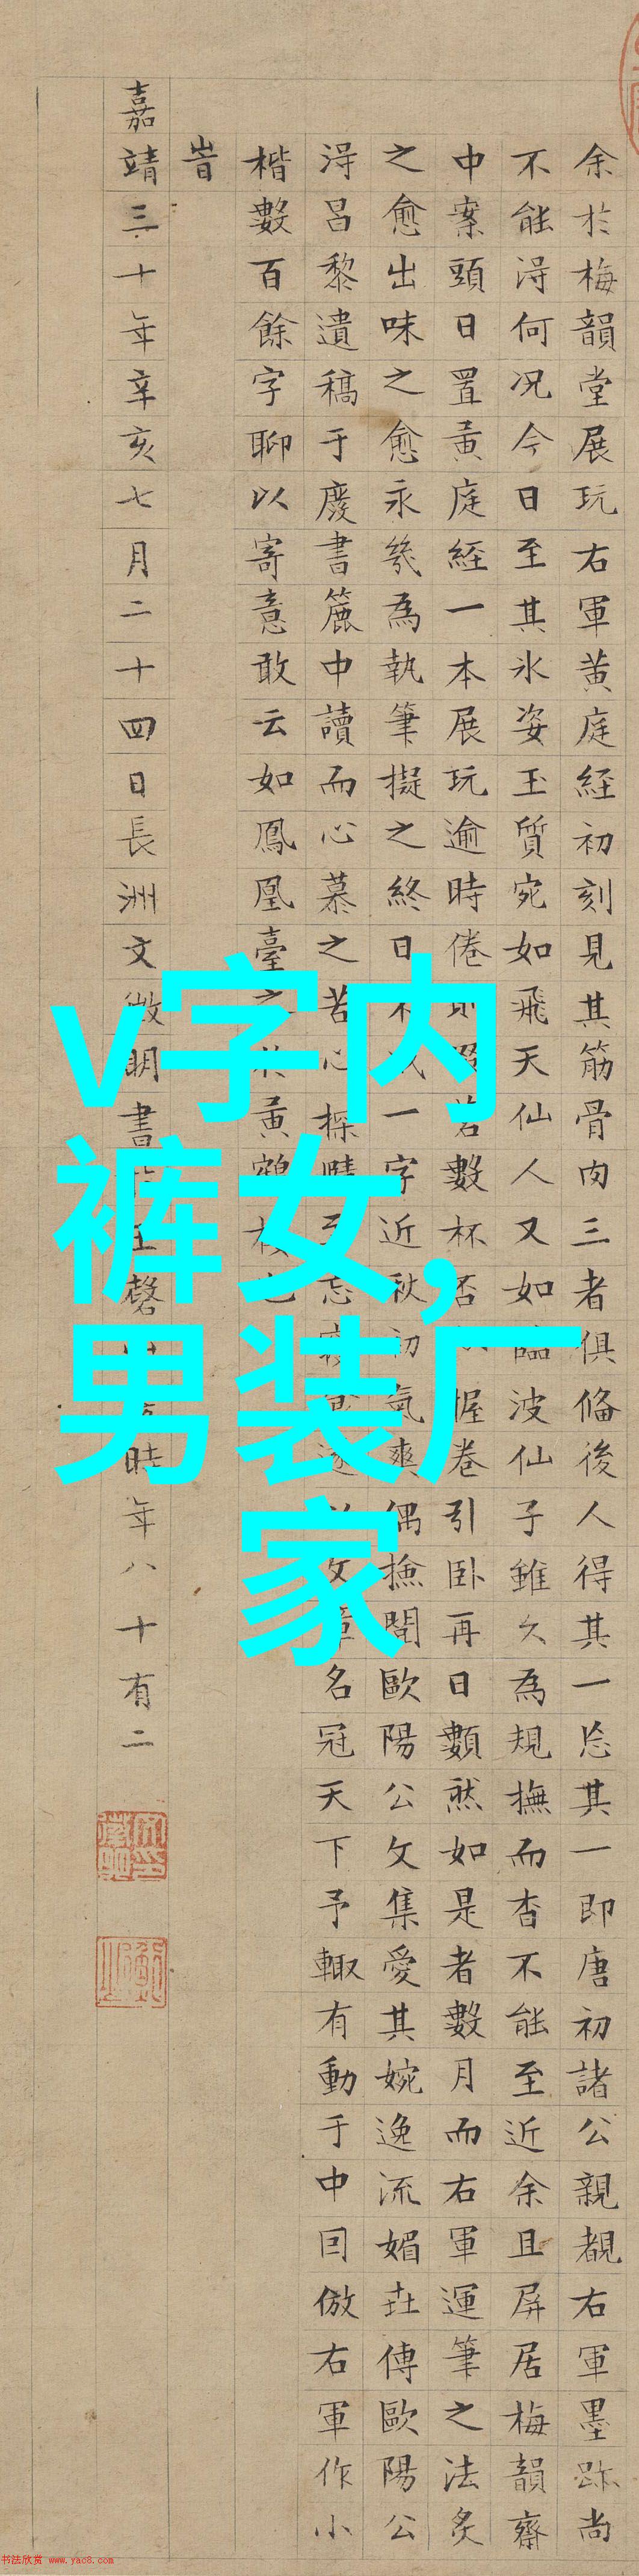 余於梅韻堂展玩右軍黃庭経初刻見其筋骨肉三者俱俻後人得其一忘其一即唐初諸公親覩右軍墨跡尚
不能淂何况今日至其氷姿玉質宛如飛天仙人又如臨波仙子雖久為規撫而杳不能至近余且屏居梅韻齋
中案頭日置黃庭経一本展玩逾時倦則啜茗數杯否握卷引卧再日數煞如是者數月而右軍運筆之法炙
之愈出味之愈永㡬為執筆擬之終日不成一字近秋初氣爽偶撿閱歐陽公文集愛其婉逸流媚垚傳歐陽公
淂呂黎遺稿于廢書簏中讀而心慕之苦心探賾至忘寢食遂以文章名冠天下予輙有動于中囙倣右軍作小
楷數百餘字聊以寄意敢云如鳳凰臺之於黃鶴樓也
旹
嘉靖三十年辛亥七月二十四日長洲文徵明書玉磬山房時年八十有二
v字内
裤女,
男装厂
家
书法欣赏 www.yac8.com